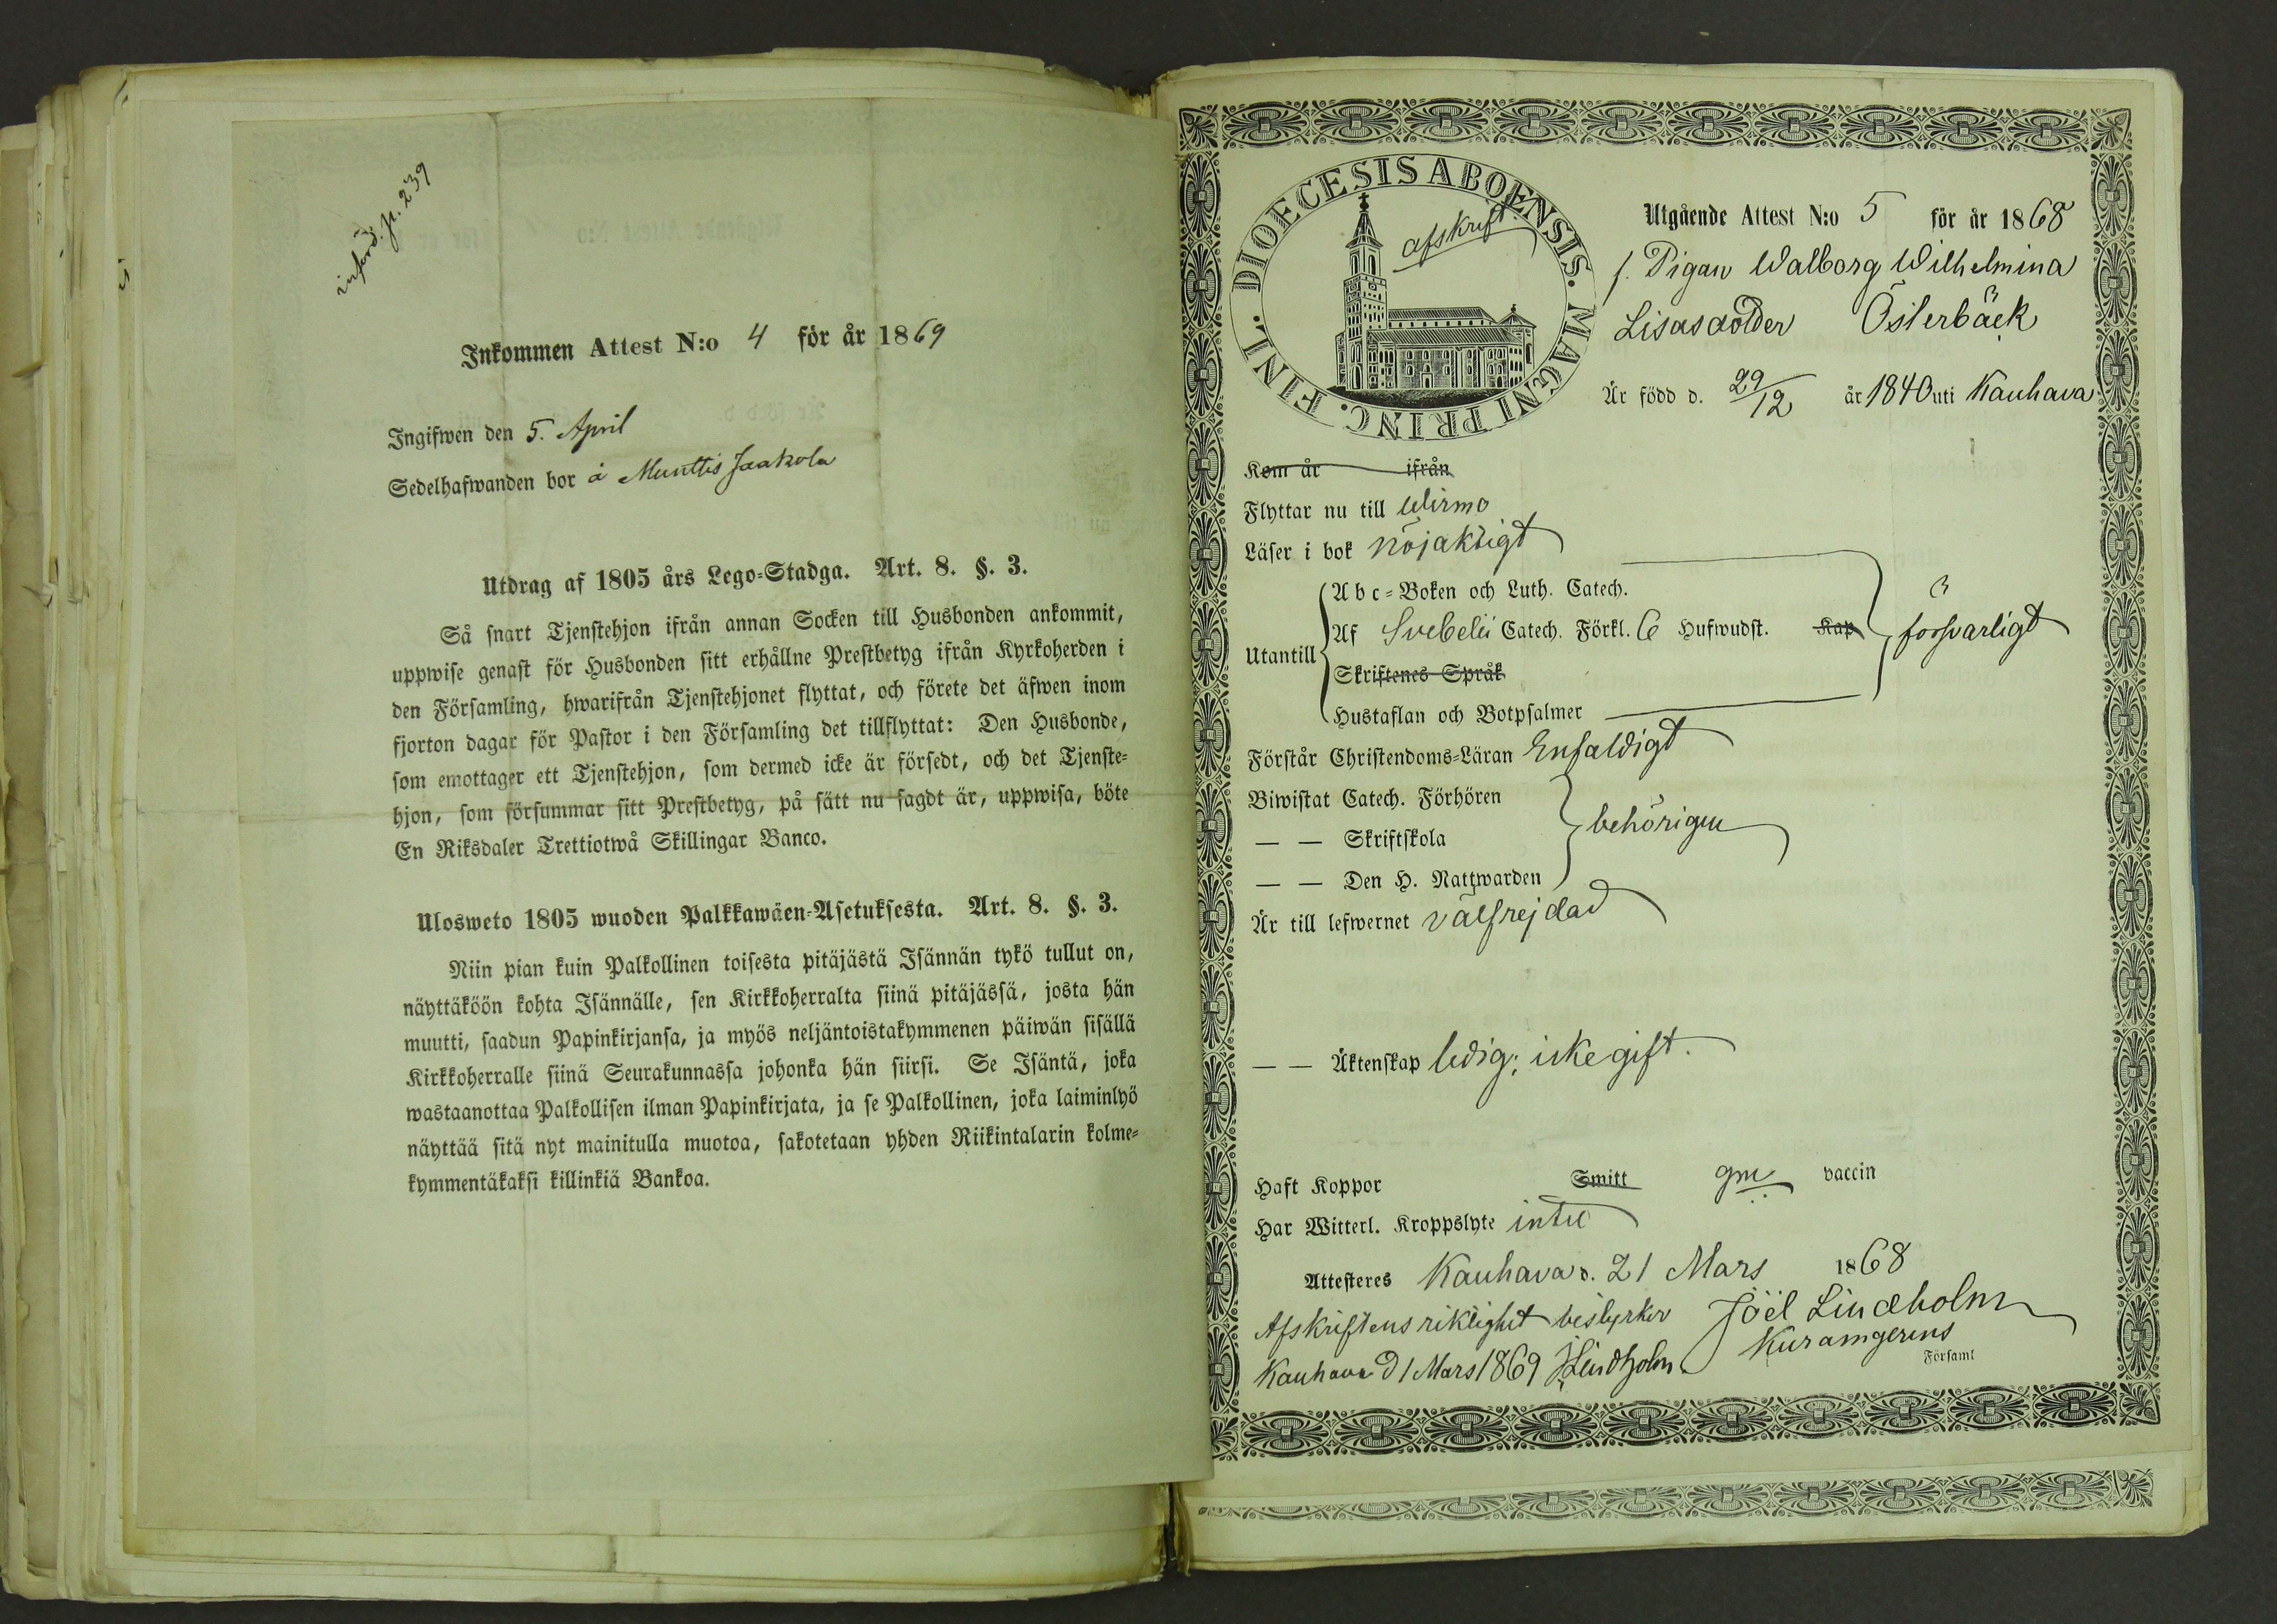 införd. p. 239
Inkommen Attest N:o 4 för år 1869
Ingifwen den 5. April
Sedelhafwanden bor å Munttis Jaakola
Utdrag af 1805 års Lego-Stadga. Art. 8. §. 3.
Så snart Tjenstehjon ifrån annan Socken till Husbonden ankommit,
uppwise genast för Husbonden sitt erhållne Prestbetyg ifrån Kyrkoherden i
den Församling, hwarifrån Tjenstehjonet flyttat, och förete det äfwen inom
fjorton dagar för Pastor i den Församling det tillflyttat: Den Husbonde,
som emottager ett Tjenstehjon, som dermed icke är försedt, och det Tjenste-
hjon, som försummar sitt Prestbetyg, på sätt nu sagdt är, uppwisa, böte
En Riksdaler Trettiotwå Skillingar Banco.
Ulosweto 1805 wuoden Palkkawäen-Asetuksesta. Art. 8. §. 3.
Niin pian kuin Palkollinen toisesta pitäjästä Isännän tykö tullut on,
näyttäköön kohta Isännälle, sen Kirkkoherralta siinä pitäjässä, josta hän
muutti, saadun Papinkirjansa, ja myös neljäntoistakymmenen päiwän sisällä
Kirkkoherralle siinä Seurakunnassa johonka hän siirsi. Se Isäntä, joka
wastaanottaa Palkollisen ilman Papinkirjata, ja se Palkollinen, joka laiminlyö
näyttää sitä nyt mainitulla muotoa, sakotetaan yhden Riikintalarin kolme-
kymmentäkaksi killinkiä Bankoa.
DIOECESIS ABOENSIS. MAGNI PRINC. FINL.
afskrift
Utgående Attest N:o 5 för år 1868
f. Pigan Walborg Wilhelmina
Lisasdotter Österbäck
Är född d. 29/12 år 1840 uti Kauhava
Kom år ifrån
Flyttar nu till Wirmo
Läser i bok nöjaktigt
Utantill
Abc-Boken och Luth. Catech.
Af Svebelii Catech. Förkl. 6 Hufwudst. Kap
Skriftenes Språk
Hustaflan och Botpsalmer
försvarligt
Förstår Christendoms-Läran Enfaldigt
Biwistat Catech. Förhören
— — Skriftskola
— — Den H. Nattwarden
behörigen
Är till lefwernet välfrejdad
— — Äktenskap ledig; icke gift.
Haft Koppor Smitt gm vaccin
Har Witterl. Kroppslyte intet
Attesteres Kauhava d. 21 Mars 1868
Joël Lindholm
Afskriftens riktighet bestyrker
Församl
Kauhava d 1 Mars 1869 J Lindholm